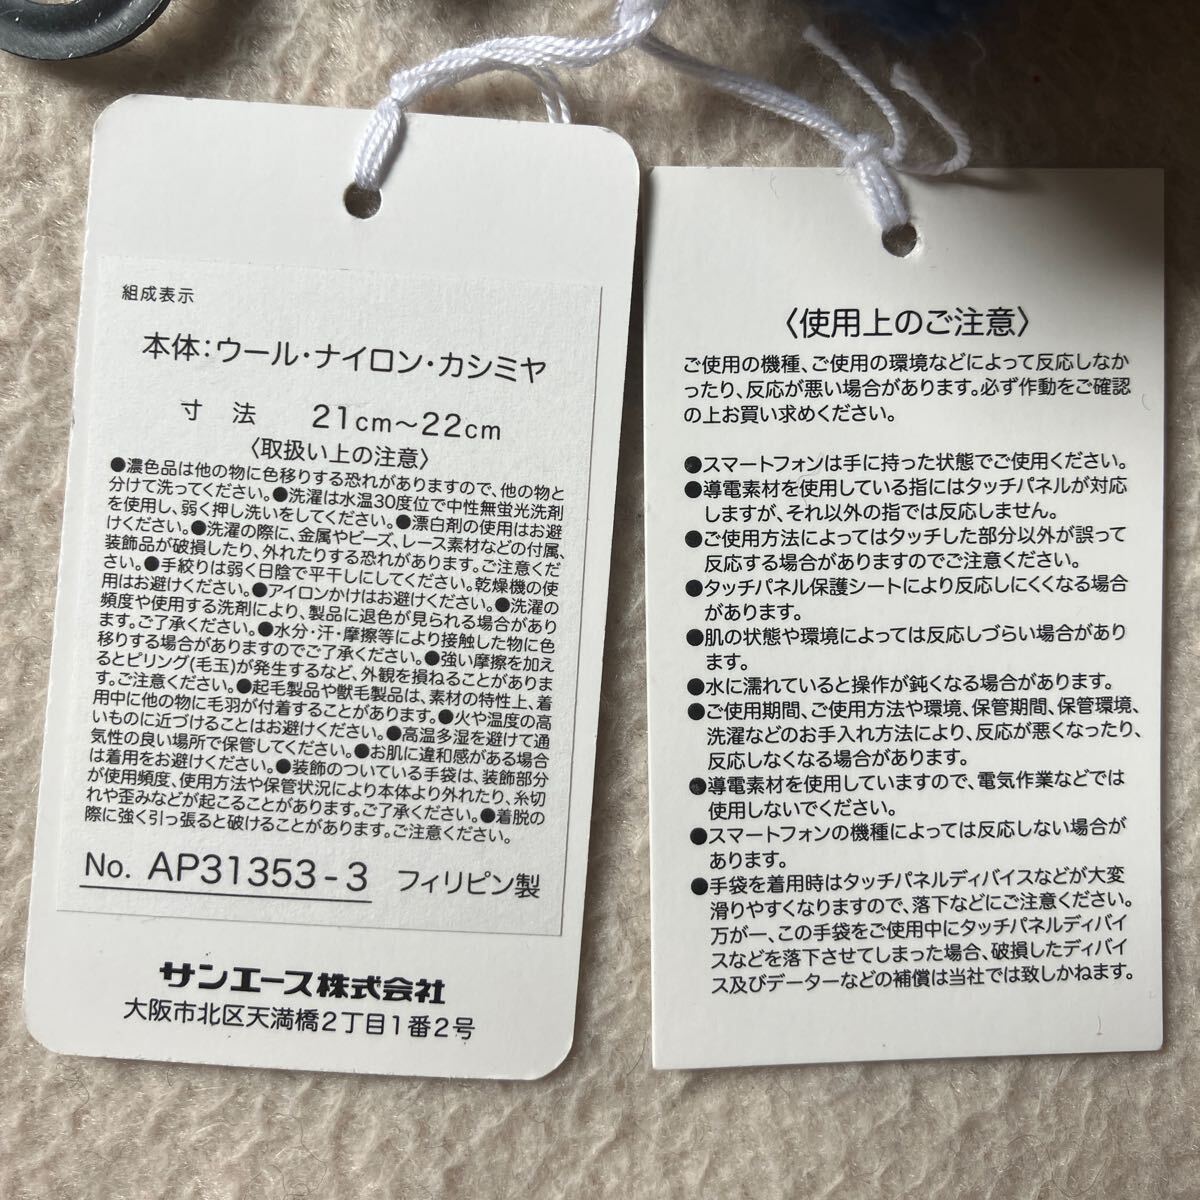 組成表示
本体：ウール・ナイロン・カシミヤ
寸 法　21cm～22cm
〈取扱い上の注意〉
●濃色品は他の物に色移りする恐れがありますので、他の物と
分けて洗ってください。●洗濯は水温30度位で中性無蛍光洗剤
を使用し、弱く押し洗いをしてください。●漂白剤の使用はお避
けください。●洗濯の際に、金属やビーズ、レース素材などの付属、
装飾品が破損したり、外れたりする恐れがあります。ご注意くだ
さい。●手絞りは弱く日陰で平干しにしてください。乾燥機の使
用はお避けください。●アイロンかけはお避けください。●洗濯の
頻度や使用する洗剤により、製品に退色が見られる場合があり
ます。ご了承ください。●水分・汗・摩擦等により接触した物に色
移りする場合がありますのでご了承ください。●強い摩擦を加え
るとピリング(毛玉)が発生するなど、外観を損ねることがありま
す。ご注意ください。●起毛製品や獣毛製品は、素材の特性上、着
用中に他の物に毛羽が付着することがあります。●火や温度の高
いものに近づけることはお避けください。●高温多湿を避けて通
気性の良い場所で保管してください。●お肌に違和感がある場合
は着用をお避けください。●装飾のついている手袋は、装飾部分
が使用頻度、使用方法や保管状況により本体より外れたり、糸切
れや歪みなどが起こることがあります。ご了承ください。●着脱の
際に強く引っ張ると破けることがあります。ご注意ください。
No. AP31353-3 フィリピン製
サンエース株式会社
大阪市北区天満橋2丁目1番2号
〈使用上のご注意〉
ご使用の機種、ご使用の環境などによって反応しなか
ったり、反応が悪い場合があります。必ず作動をご確認
の上お買い求めください。
●スマートフォンは手に持った状態でご使用ください。
●導電素材を使用している指にはタッチパネルが対応
しますが、それ以外の指では反応しません。
●ご使用方法によってはタッチした部分以外が誤って
反応する場合がありますのでご注意ください。
●タッチパネル保護シートにより反応しにくくなる場合
があります。
●肌の状態や環境によっては反応しづらい場合があり
ます。
●水に濡れていると操作が鈍くなる場合があります。
●ご使用期間、ご使用方法や環境、保管期間、保管環境、
洗濯などのお手入れ方法により、反応が悪くなったり、
反応しなくなる場合があります。
●導電素材を使用していますので、電気作業などでは
使用しないでください。
●スマートフォンの機種によっては反応しない場合が
あります。
●手袋を着用時はタッチパネルディバイスなどが大変
滑りやすくなりますので、落下などにご注意ください。
万が一、この手袋をご使用中にタッチパネルディバイ
スなどを落下させてしまった場合、破損したディバイ
ス及びデーターなどの補償は当社では致しかねます。